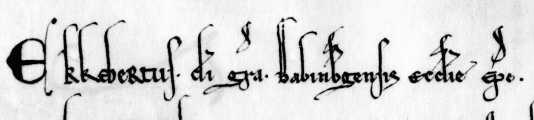 Ekkebertus. di gra. babinbgensis eccłie epc.